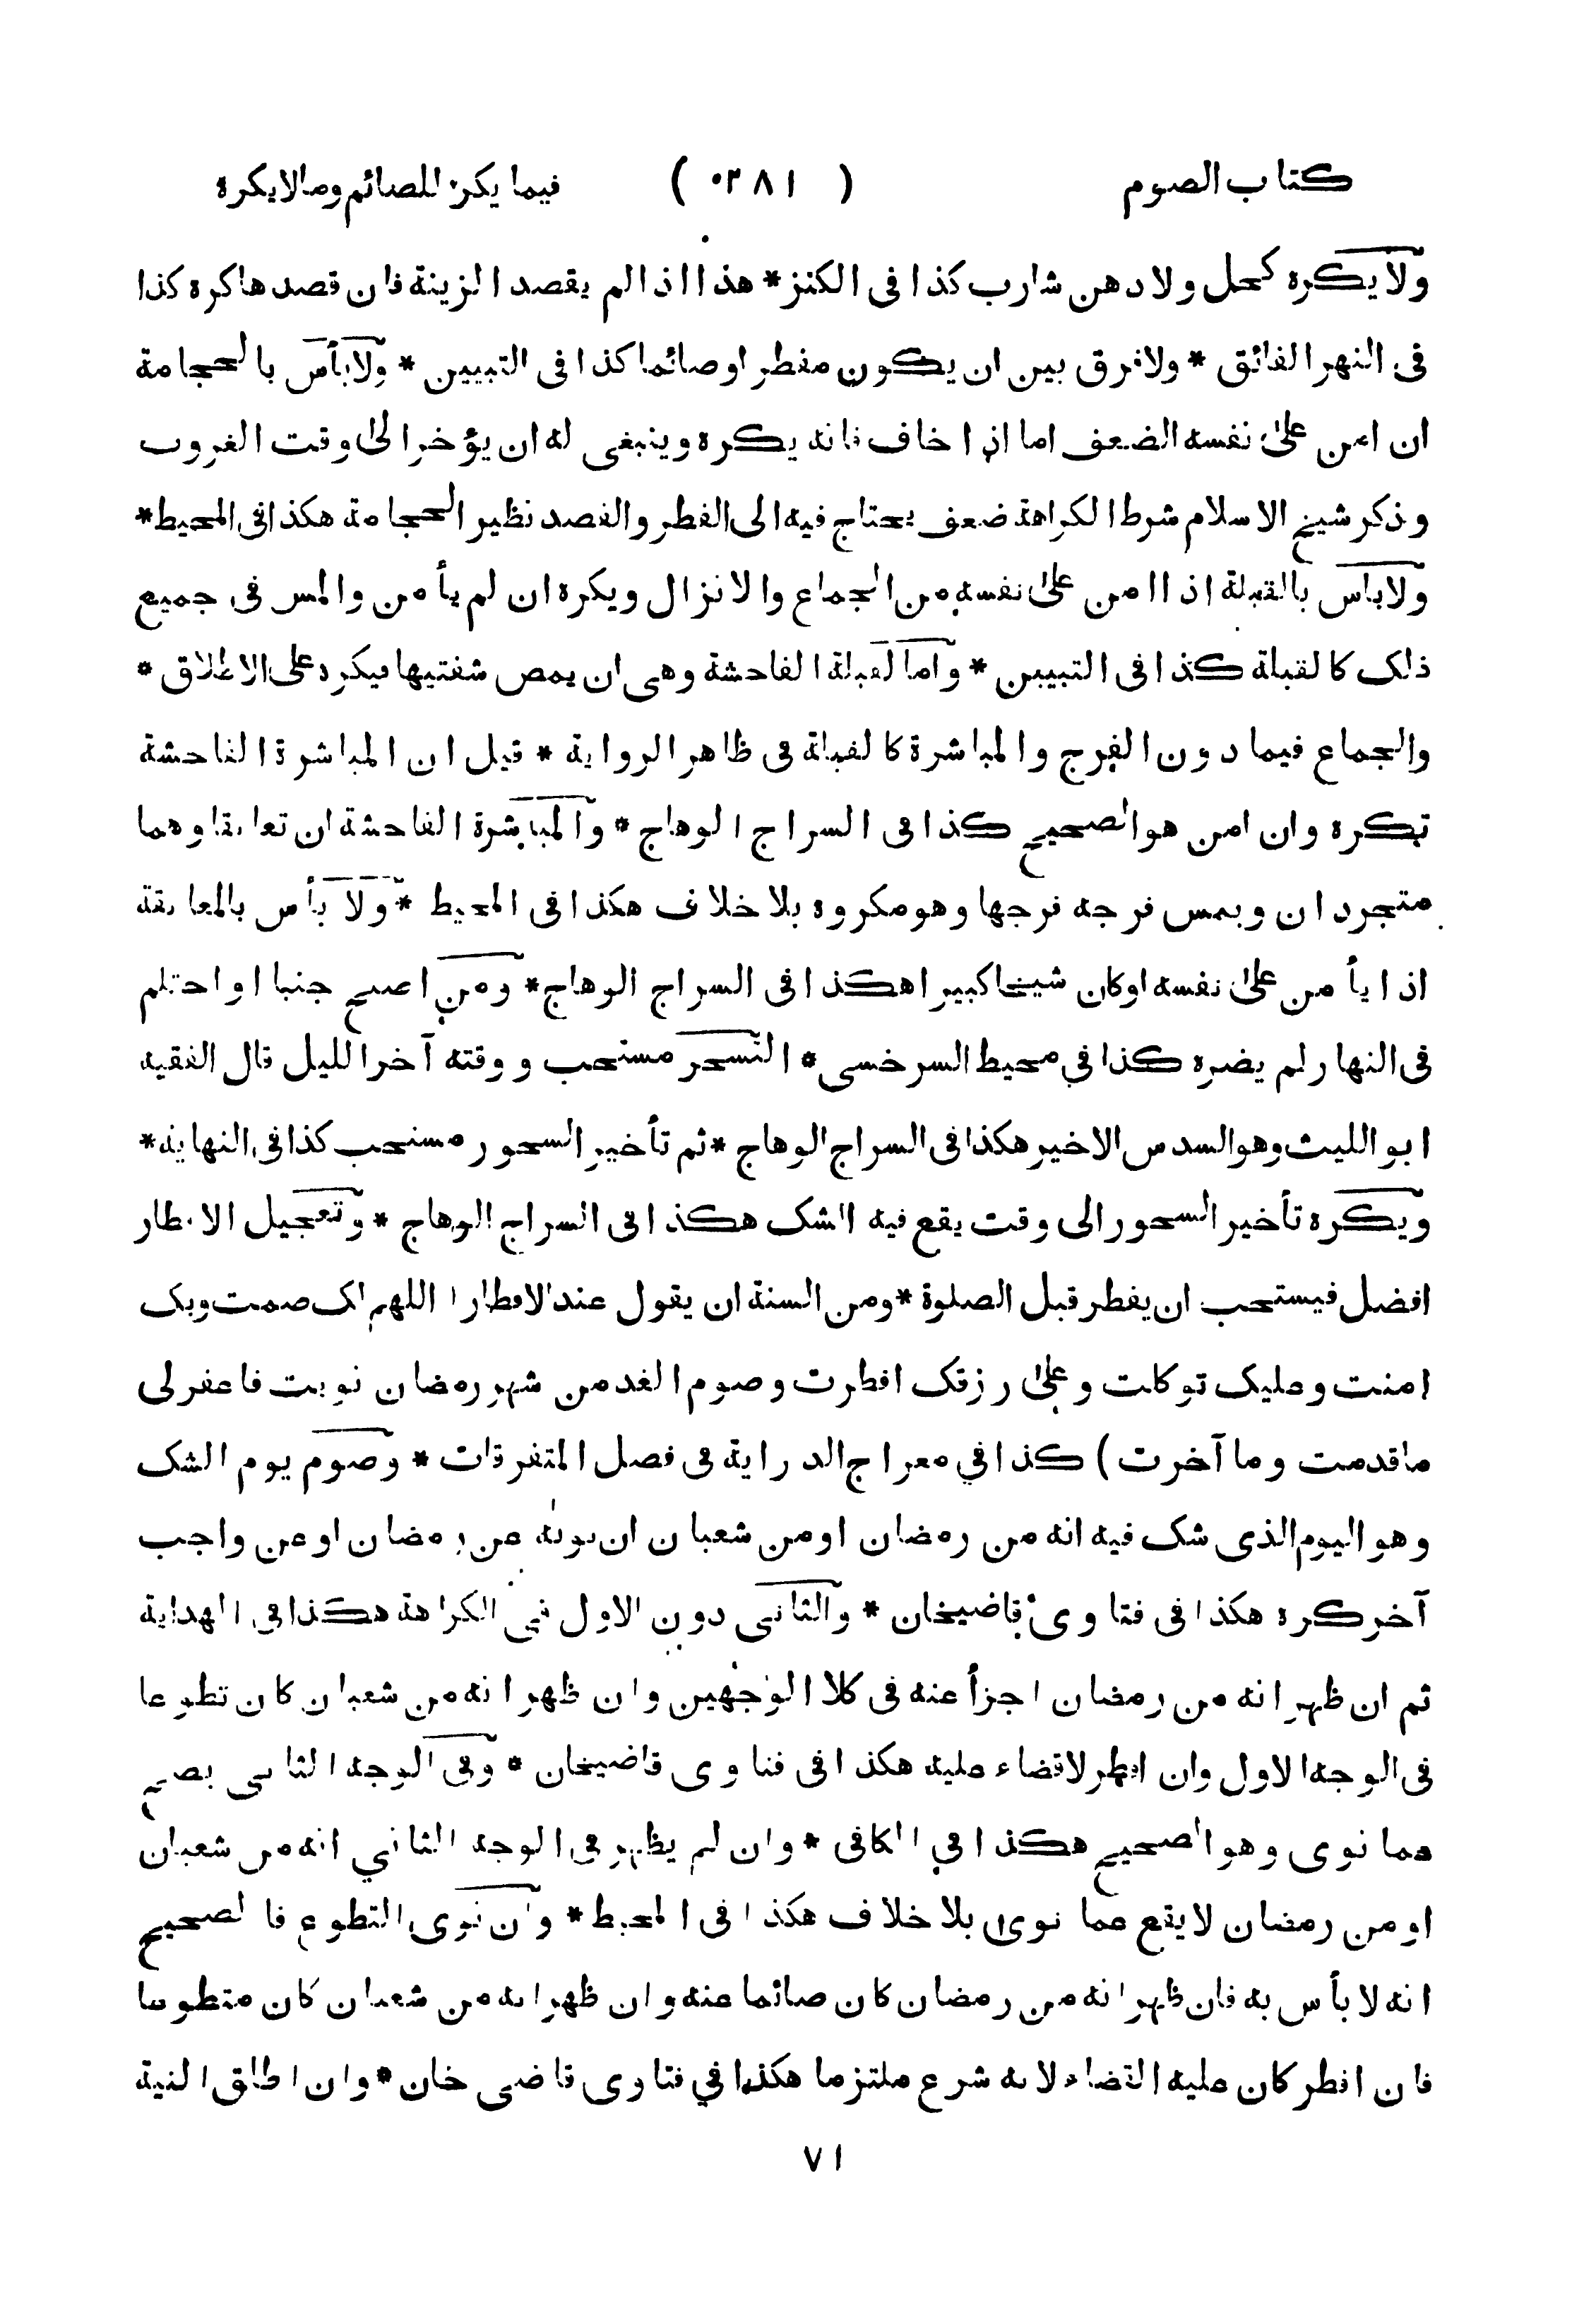 كتاب الصوم ( ٢٨١ ) فيما يكره للصائم ومالايكره
ولا يكره كحل ولا دهن شارب كذا فى الكنز * هذا اذا لم يقصد الزينة فان قصدها كره كذا
فى النهر الفائق * ولا فرق بين ان يكون مفطر اوصائما كذا فى التبيين * ولا بأس بالحجامة
ان امن على نفسه الضعف اما اذا خاف فانه يكره وينبغى له ان يؤخر الى وقت الغروب
وذكر شيخ الاسلام شرط الكراهة ضعف يحتاج فيه الى الفطر والفصد نظير الحجامة هكذا فى المحيط *
ولاباس بالقبلة اذا امن على نفسه من الجماع والانزال ويكره ان لم يأمن والمس فى جميع
ذلك كالقبلة كذا فى التبيين * واما القبلة الفاحشة وهى ان يمص شفتيها فيكره على الاطلاق *
والجماع فيما دون الفرج والمباشرة كالقبلة فى ظاهر الرواية * قيل ان المباشرة الفاحشة
تكره وان امن هو الصحيح كذا فى السراج الوهاج * والمباشرة الفاحشة ان تعانقا وهما
متجردان ويمس فرجه فرجها وهو مكروه بلا خلاف هكذا فى المحيط * ولا بأس بالمعانقة
اذا يأمن على نفسه اوكان شيخا كبيرا هكذا فى السراج الوهاج * ومن اصبح جنبا او احتلم
فى النهار لم يضره كذا في محيط السرخسى * التسحر مستحب ووقته آخر الليل قال الفقيه
ابو الليث وهو السدس الاخير هكذا فى السراج الوهاج * ثم تأخير السحور مستحب كذا فى النهاية *
ويكره تأخير السحور الى وقت يقع فيه الشك هكذا فى السراج الوهاج * وتعجيل الافطار
افضل فيستحب ان يفطر قبل الصلوة * ومن السنة ان يقول عند الافطار ا اللهم لك صمت وبك
امنت وعليك توكلت وعلى رزقك افطرت وصوم الغد من شهر رمضان نويت فاغفر لى
ما قدمت وما آخرت ) كذا في معراج الدراية فى فصل المتفرقات * وصوم يوم الشك
وهو اليوم الذى شك فيه انه من رمضان اومن شعبان ان نوىٰ عن رمضان او عن واجب
آخر كره هكذا فى فتاوىٰ قاضيخان * والثانى دون الاول فى الكراهة هكذا فى الهداية
ثم ان ظهر انه من رمضان اجزأ عنه فى كلا الوجهين وان ظهر انه من شعبان كان تطوعا
فى الوجه الاول وان افطر لاقضاء عليه هكذا فى فتاوى قاضيخان * وفى الوجه الثانى يصح
عما نوى وهو الصحيح هكذا فى الكافى * وان لم يظهر فى الوجه الثاني انه من شعبان
او من رمضان لا يقع عما نوى بلا خلاف هكذا فى المحيط * وان نوى التطوع فالصحيح
انه لا بأس به فان ظهر انه من رمضان كان صائما عنه وان ظهر انه من شعبان كان متطوعا
فان افطر كان عليه القضاء لانه شرع ملتزما هكذا في فتاوى قاضى خان * وان اطلق النية
٧١